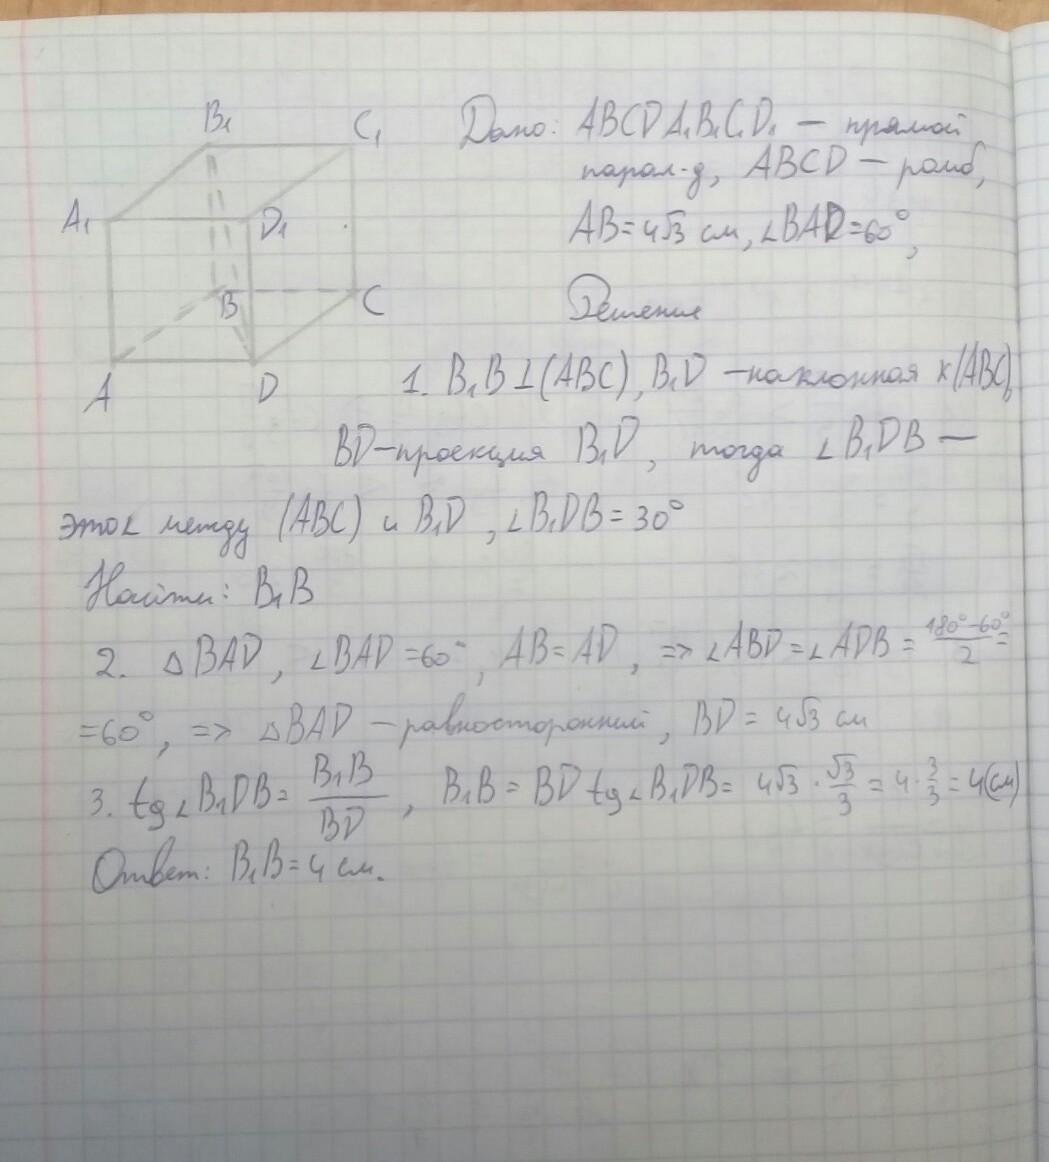 B₁
C₁
A₁
D₁
B
C
A
D
Дано: ABCDA₁B₁C₁D₁ — прямой
парал-д, ABCD — ромб,
AB=4√3 см, ∠BAD=60°,
Решение
1. B₁B⊥(ABC), B₁D —наклонная к (ABC),
BD—проекция B₁D, тогда ∠B₁DB —
это ∠ между (ABC) и B₁D, ∠B₁DB=30°
Найти: B₁B
2. △BAD, ∠BAD=60°, AB=AD, => ∠ABD=∠ADB= (180°-60°)/2 =
=60°, => △BAD —равносторонний, BD=4√3 см
3. tg∠B₁DB= B₁B/BD, B₁B= BD tg∠B₁DB= 4√3 · √3/3 = 4 · 3/3 = 4(см)
Ответ: B₁B=4 см.